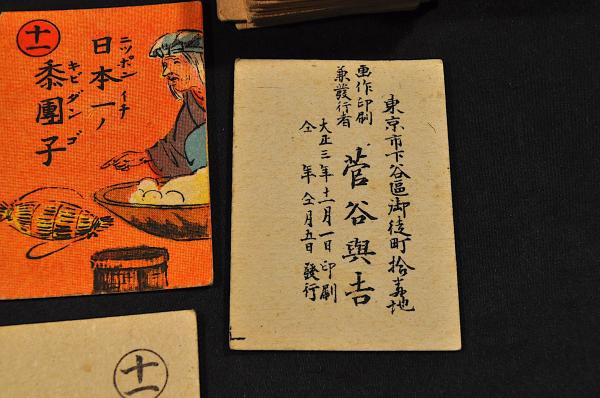 十一
日本一ノ
ニッポンイチ
黍團子
キビダンゴ
東京市下谷區御徒町拾壱地
画作印刷
兼發行者
菅谷與吉
大正三年十二月一日印刷
仝年仝月五日發行
十一